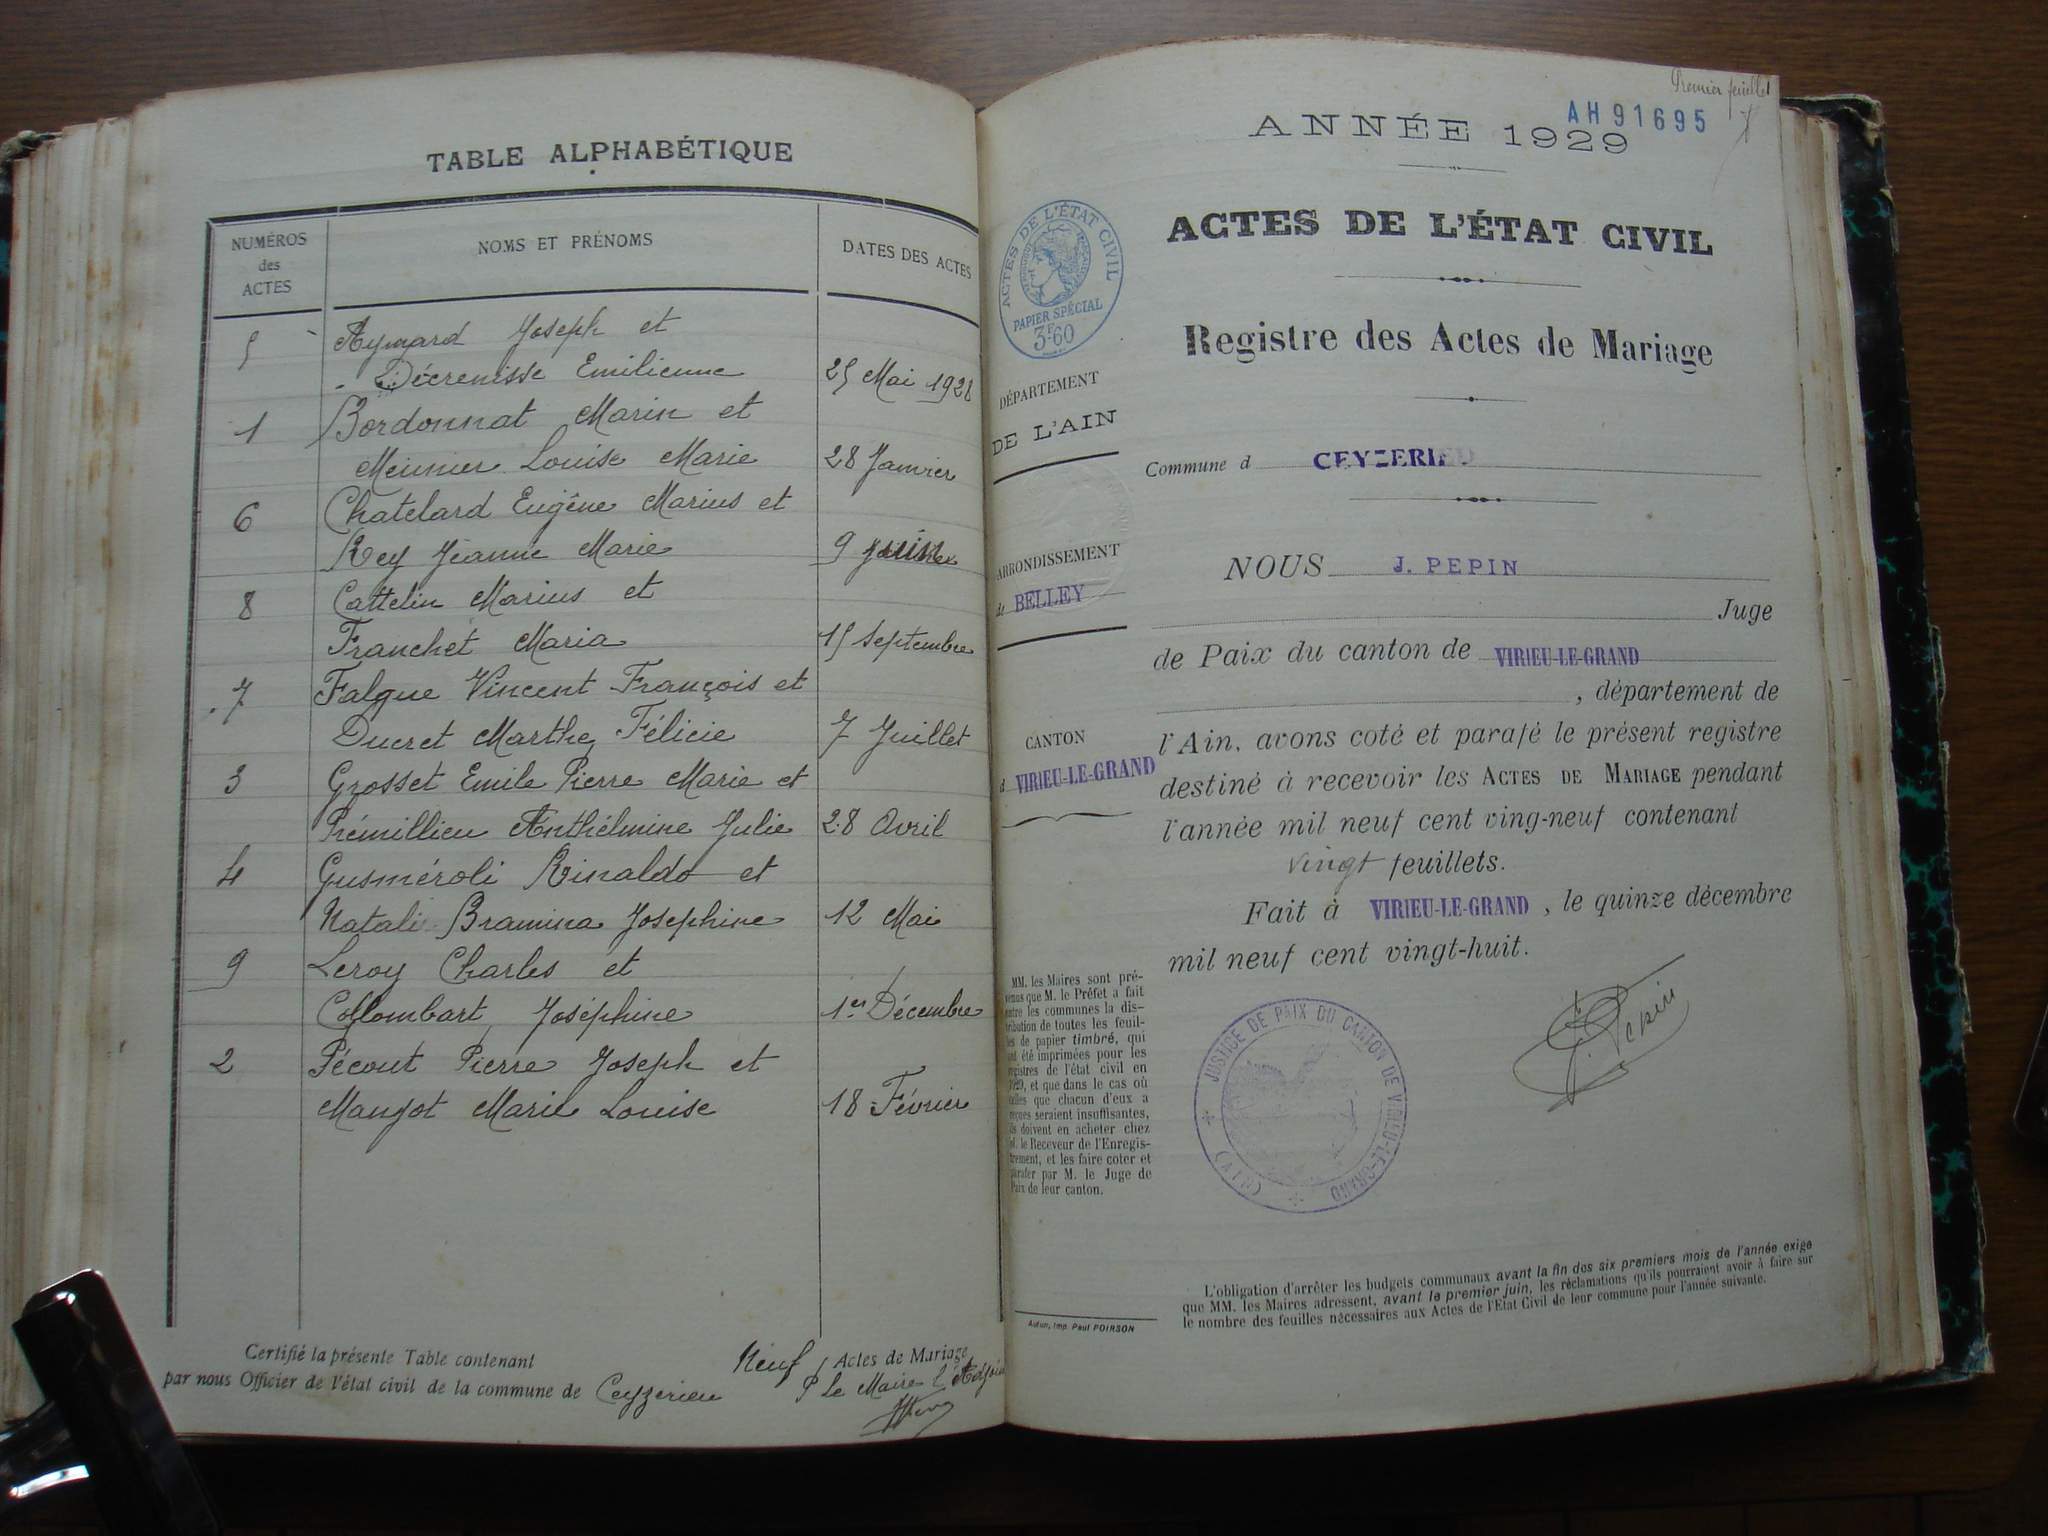 TABLE ALPHABÉTIQUE
NUMÉROS des ACTES
NOMS ET PRÉNOMS
DATES DES ACTES
5 Aymard Joseph et
Décrenisse Emilienne 25 Mai 1928
1 Bordonnat Marin et
Meunier Louise Marie 28 Janvier
6 Chatelard Eugêne Marius et
Rey Jeanne Marie 9 juin
8 Cattelin Marius et
Franchet Maria 15 Septembre
7 Falque Vincent François et
Ducret Marthe Félicie 7 Juillet
3 Grosset Emile Pierre Marie et
Prémillieu Anthélmine Julie 28 Avril
4 Gusméroli Rinaldo et
Natali Bramina Josephine 12 Mai
9 Leroy Charles et
Collombart Joséphine 1er Décembre
2 Pécout Pierre Joseph et
Mangot Marie Louise 18 Février
Certifié la présente Table contenant Neuf Actes de Mariage
par nous Officier de l'état civil de la commune de Ceyzerieu
P Le Maire l'Adjoint
Premier feuillet
AH91695
ANNÉE 1929
ACTES DE L'ÉTAT CIVIL
Registre des Actes de Mariage
ACTES DE L'ÉTAT CIVIL
PAPIER SPÉCIAL
3F60
DÉPARTEMENT
DE L'AIN
ARRONDISSEMENT
de BELLEY
CANTON
d VIRIEU-LE-GRAND
Commune d CEYZERIEU
NOUS J. PEPIN
Juge
de Paix du canton de VIRIEU-LE-GRAND
, département de
l'Ain, avons coté et parafé le présent registre
destiné à recevoir les ACTES DE MARIAGE pendant
l'année mil neuf cent ving-neuf contenant
vingt feuillets.
Fait à VIRIEU-LE-GRAND, le quinze décembre
mil neuf cent vingt-huit.
J. Pepin
JUSTICE DE PAIX DU CANTON DE VIRIEU-LE-GRAND
(AIN)
MM. les Maires sont pré-
venus que M. le Préfet a fait
entre les communes la dis-
tribution de toutes les feuil-
les de papier timbré, qui
ont été imprimées pour les
registres de l'état civil en
1929, et que dans le cas où
celles que chacun d'eux a
reçues seraient insuffisantes,
ils doivent en acheter chez
M. le Receveur de l'Enregis-
trement, et les faire coter et
parafer par M. le Juge de
Paix de leur canton.
Autun, Imp. Paul POIRSON
L'obligation d'arrêter les budgets communaux avant la fin des six premiers mois de l'année exige
que MM. les Maires adressent, avant le premier juin, les réclamations qu'ils pourraient avoir à faire sur
le nombre des feuilles nécessaires aux Actes de l'État Civil de leur commune pour l'année suivante.